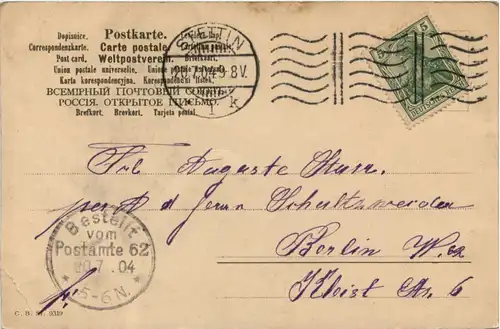 Dopisnice. Postkarte. Levelező-Lap.
Correspondenzkarte. Carte postale
Post card. Weltpostverein. Briefkaart.
Union postale universelle. Unione postale
Karta korespondencyjna. Korespondenční lístek.
ВСЕМІРНЫЙ ПОЧТОВЫЙ СОЮЗЪ
РОССІЯ. ОТКРЫТОЕ ПИСЬМО.
Brefkort. Brevkort. Tarjeta postal.
BERLIN
20.7.04.9-8V.
1 k
5
Frl Auguste Stam.
per Ad d Herrn Schaltzwerden
Berlin W. 62
Kleist Str. 6
Bestellt
vom
Postamte 62
20.7.04
5-6 N.
fr.